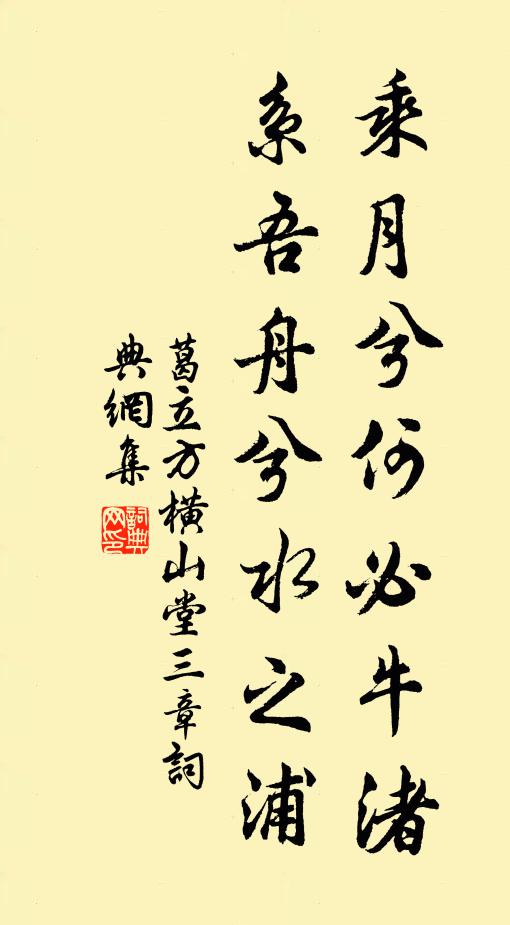 乘月兮何必牛渚
系吾舟兮水之浦
葛立方橫山堂三章詞
典網集
詞典網印